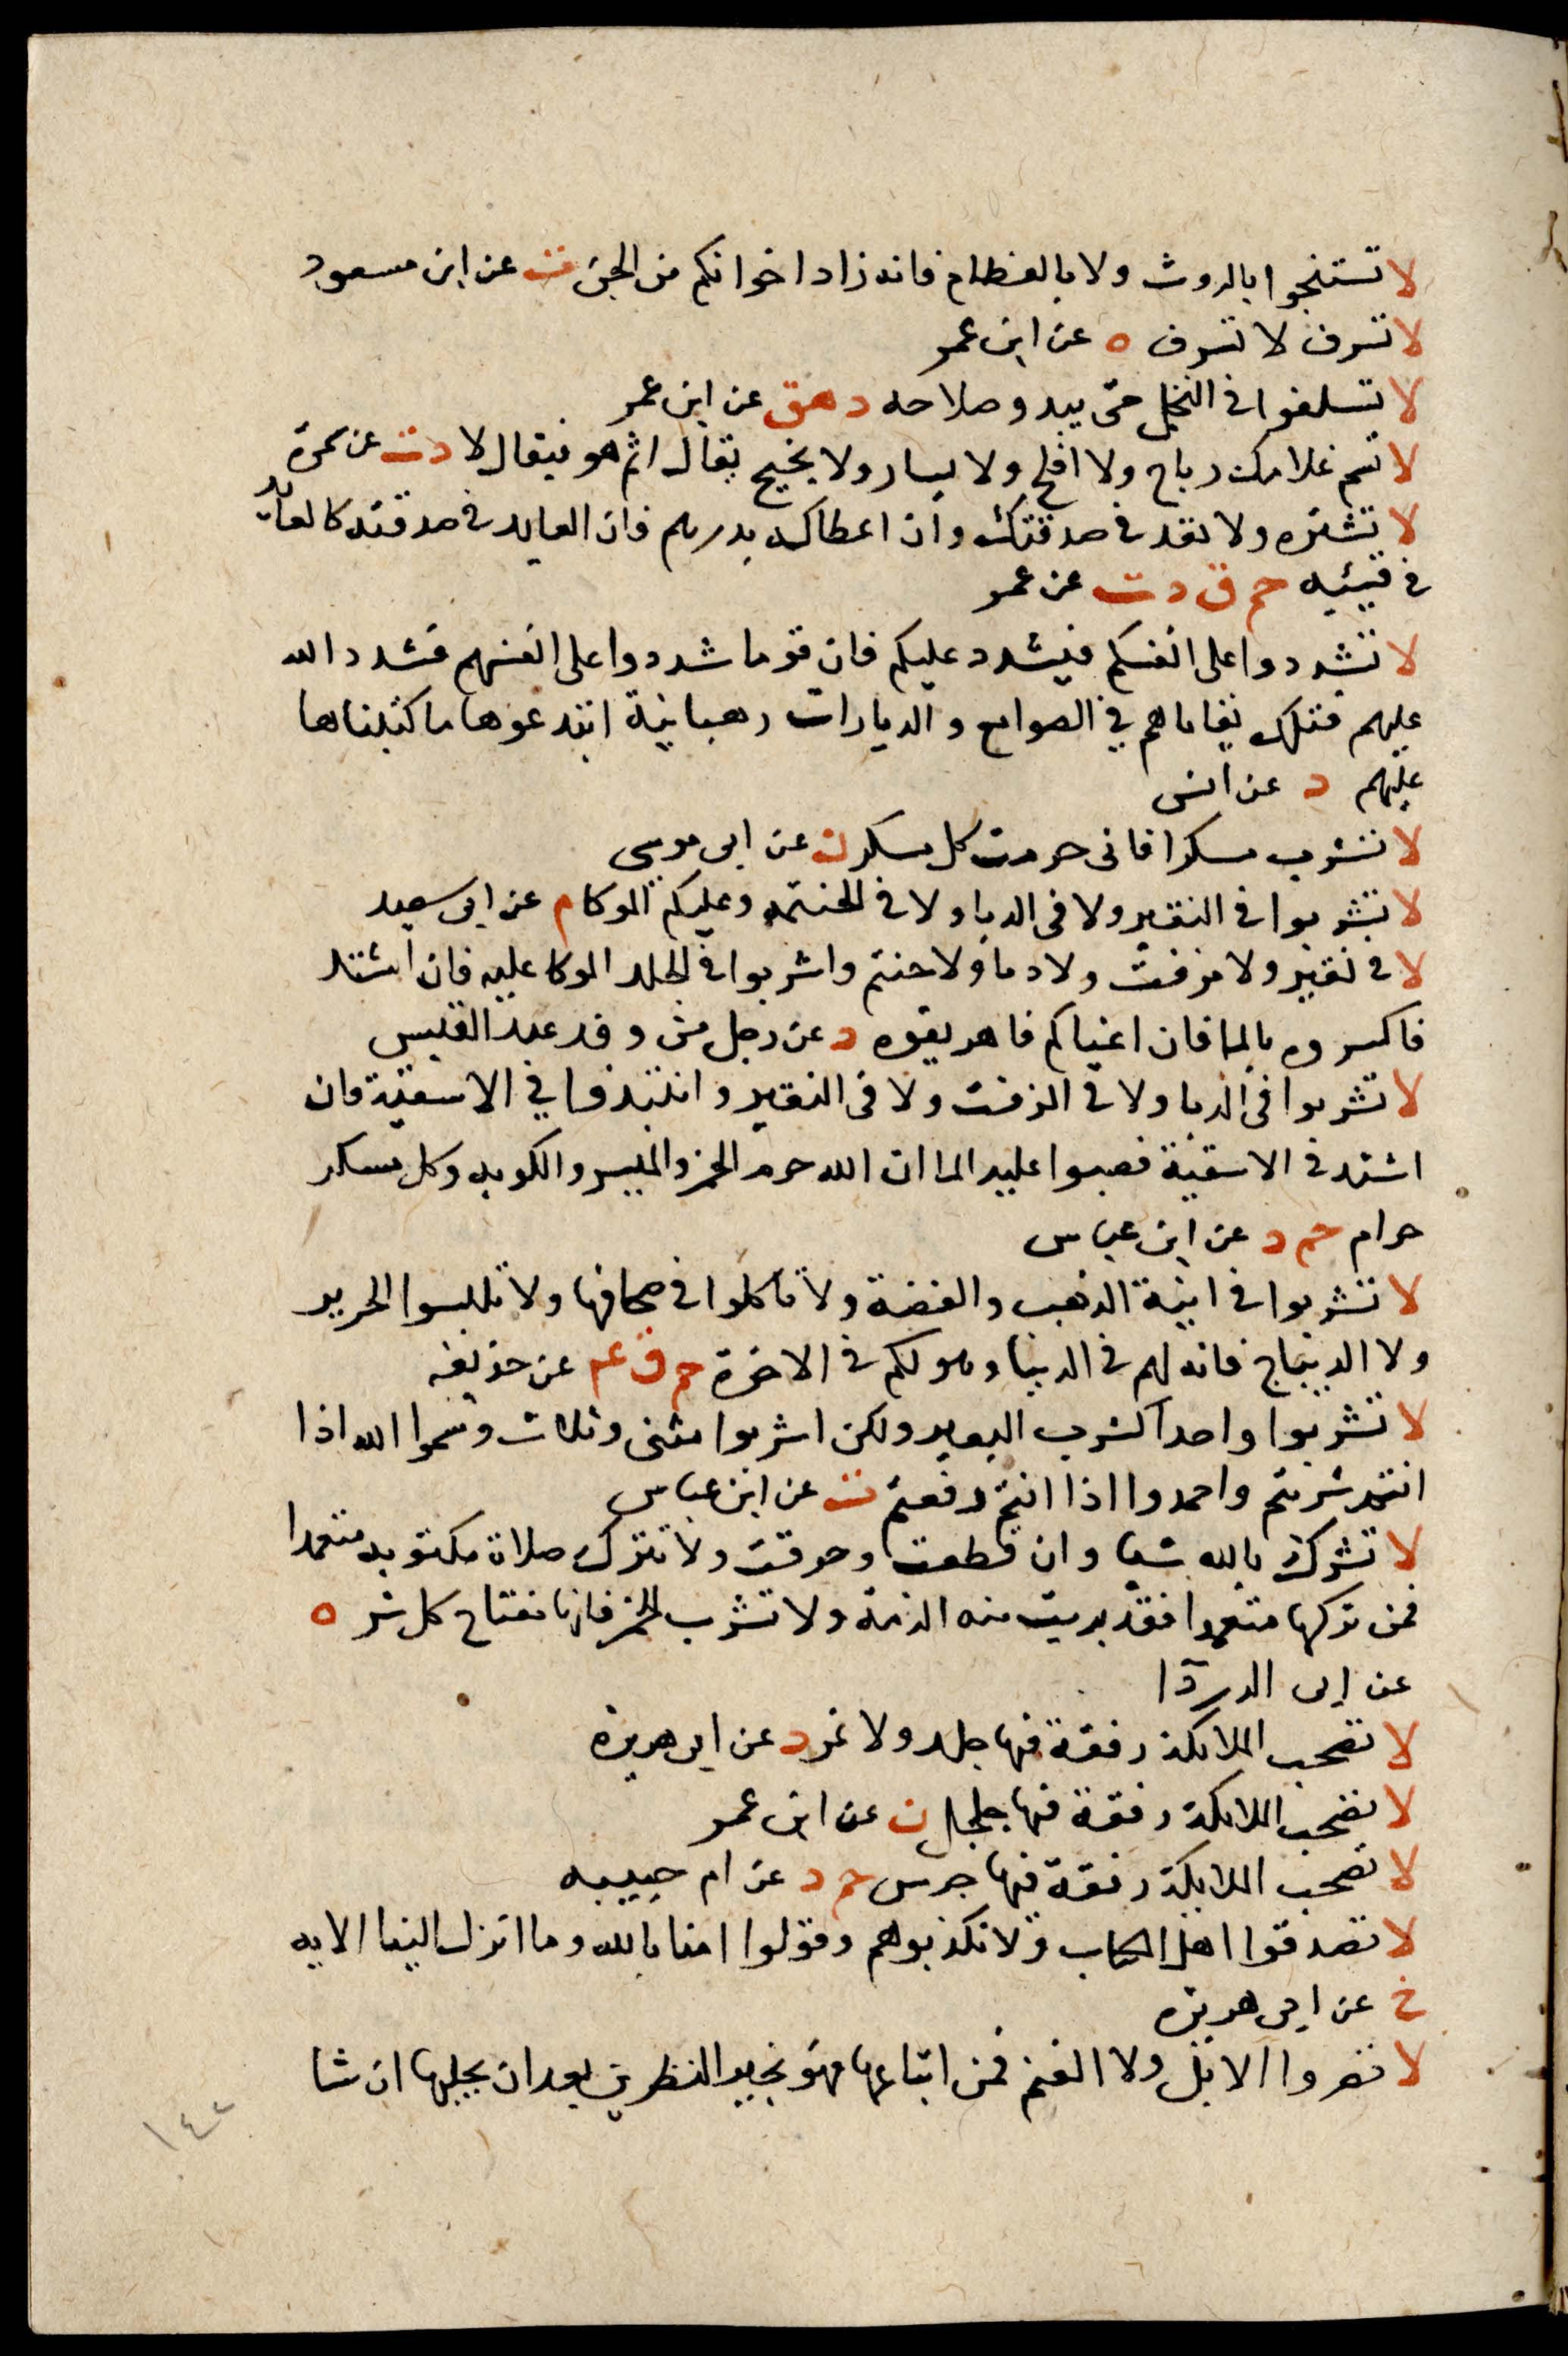 لا تستنجوا بالروث ولا بالعظام فانه زاد اخوانكم من الجن ت عن ابن مسعود
لا تسرف لا تسرف ه عن ابن عمر
لا تسلفوا في النخل حتى يبدو صلاحه د هق عن ابن عمر
لا تسم غلامك رباح ولا افلح ولا يسار ولا نجيح يقال اثم هو فيقال لا د ت عن سمرة
لا تشتره ولا تعد في صدقتك وان اعطاكه بدرهم فان العايد في صدقته كالعايد
في قيئه حم ق د ت عن عمر
لا تشددوا على انفسكم فيشدد عليكم فان قوما شددوا على انفسهم فشدد الله
عليهم فتلك بقاياهم في الصوامع والديارات رهبانية ابتدعوها ما كتبناها
عليهم د عن انس
لا تشرب مسكرا فانى حرمت كل مسكر ن عن ابى موسى
لا تشربوا في النقير ولا في الدبا ولا في الحنتمه وعليكم الموكا م عن ابى سعيد
لا في نقير ولا مزفت ولا دبا ولا حنتم واشربوا في الجلد الموكا عليه فان اشتد
فاكسروه بالما فان اعياكم فاهريقوه د عن رجل من وفد عبد القيس
لا تشربوا في الدبا ولا في المزفت ولا في النقير وانتبذوا في الاسقية فان
اشتد في الاسقية فصبوا عليه الما ان الله حرم الخمر والميسر والكوبه وكل مسكر
حرام حم د عن ابن عباس
لا تشربوا في انية الذهب والفضة ولا تاكلوا في صحافها ولا تلبسوا الحرير
ولا الديباج فانه لهم في الدنيا وهو لكم في الاخرة حم ق عم عن حذيفه
لا تشربوا واحدا كشرب البعير ولكن اشربوا مثنى وثلاث وسموا الله اذا
انتم شربتم واحمدوا اذا انتم رفعتم ت عن ابن عباس
لا تشرك بالله شيا وان قطعت وحرقت ولا تترك صلاة مكتوبه متعمدا
فمن تركها متعمدا فقد بريت منه الذمة ولا تشرب الخمر فانها مفتاح كل شر ه
عن ابى الدردا
لا تصحب الملايكة رفقة فيها جلد ولا نمر د عن ابى هريره
لا تصحب الملايكة رفقة فيها جلجل ن عن ابن عمر
لا تصحب الملايكة رفقة فيها جرس حم د عن ام حبيبه
لا تصدقوا اهل الكتاب ولا تكذبوهم وقولوا امنا بالله وما انزل الينا الايه
خ عن ابى هريره
لا تصروا الابل ولا الغنم فمن ابتاعها فهو بخير النظرين بعد ان يحلبها ان شا
١٤٢